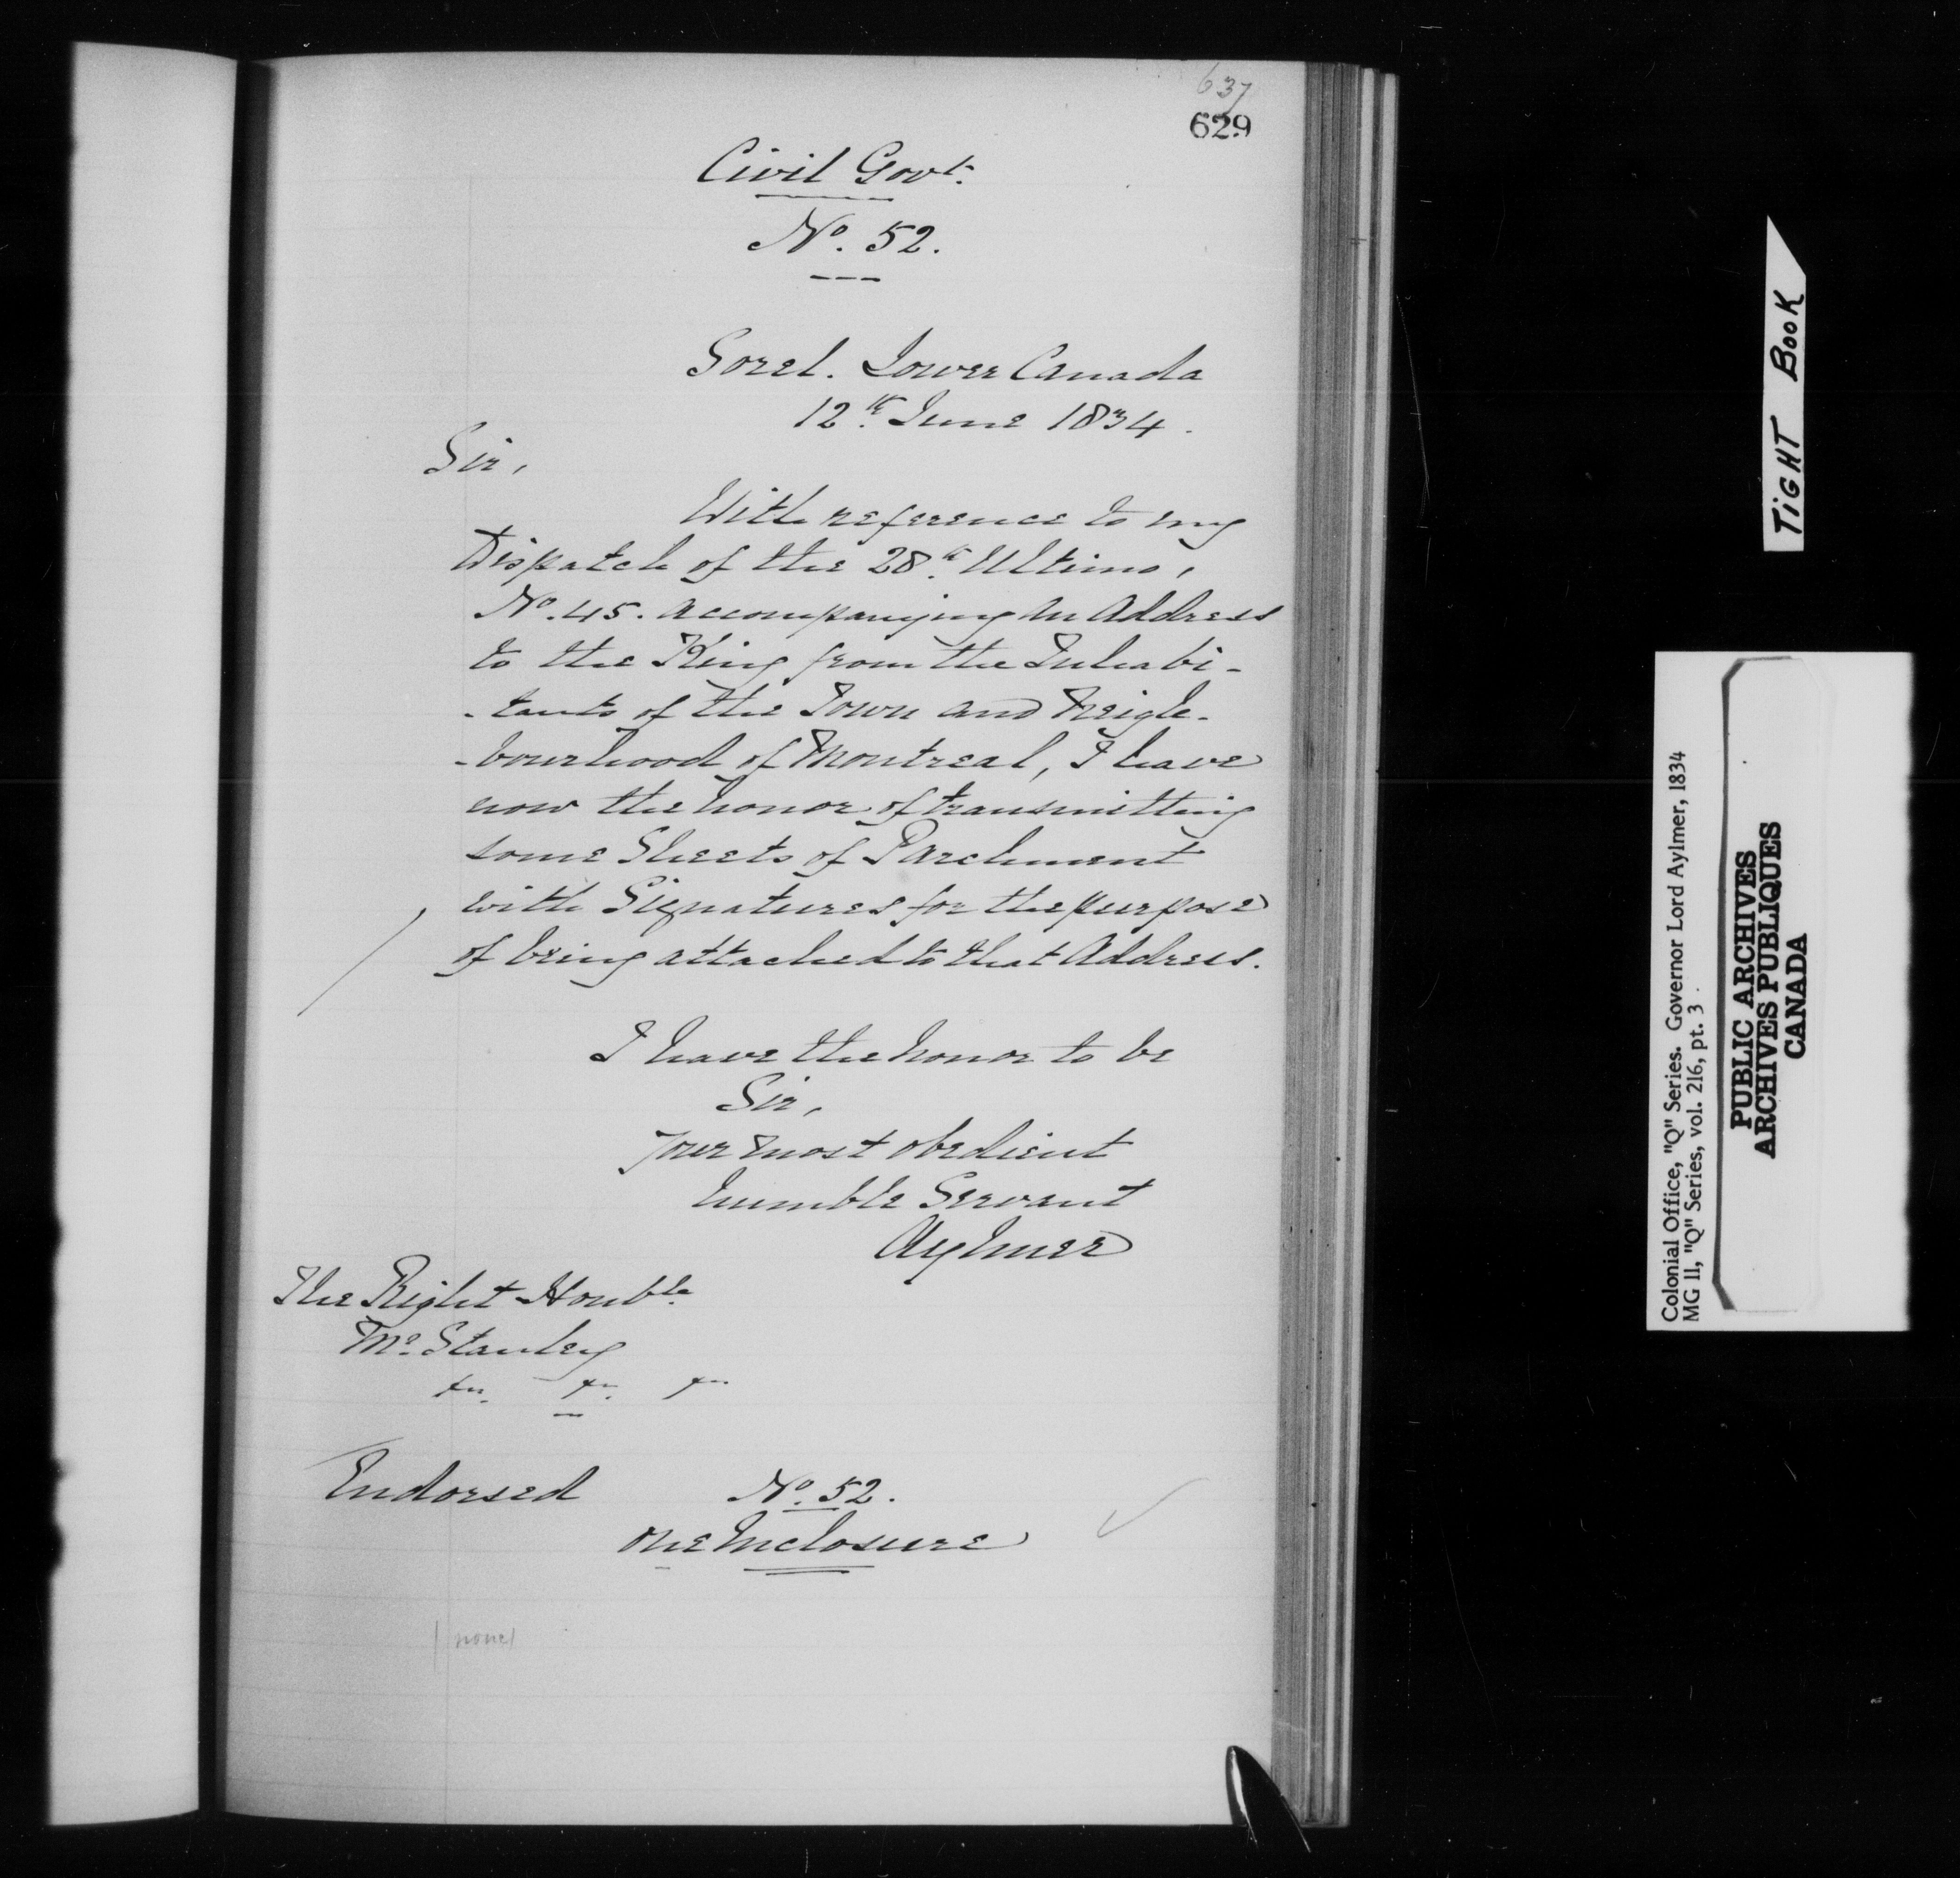 637
629
Civil Govt.
No. 52.
Sorel. Lower Canada
12th June 1834.
Sir,
With reference to my
Dispatch of the 28th Ultimo,
No. 45. accompanying an Address
to the King from the Inhabi-
-tants of the Town and Neigh-
-bourhood of Montreal, I have
now the honor of transmitting
some Sheets of Parchment
with Signatures for the purpose
of being attached to that Address.
I have the honor to be
Sir,
Your most obedient
humble Servant
Aylmer
The Right Honble.
Mr. Stanley
Endorsed No. 52.
One Inclosure
none
TIGHT BOOK
Colonial Office, "Q" Series. Governor Lord Aylmer, 1834
MG 11, "Q" Series, vol. 216, pt. 3
PUBLIC ARCHIVES
ARCHIVES PUBLIQUES
CANADA